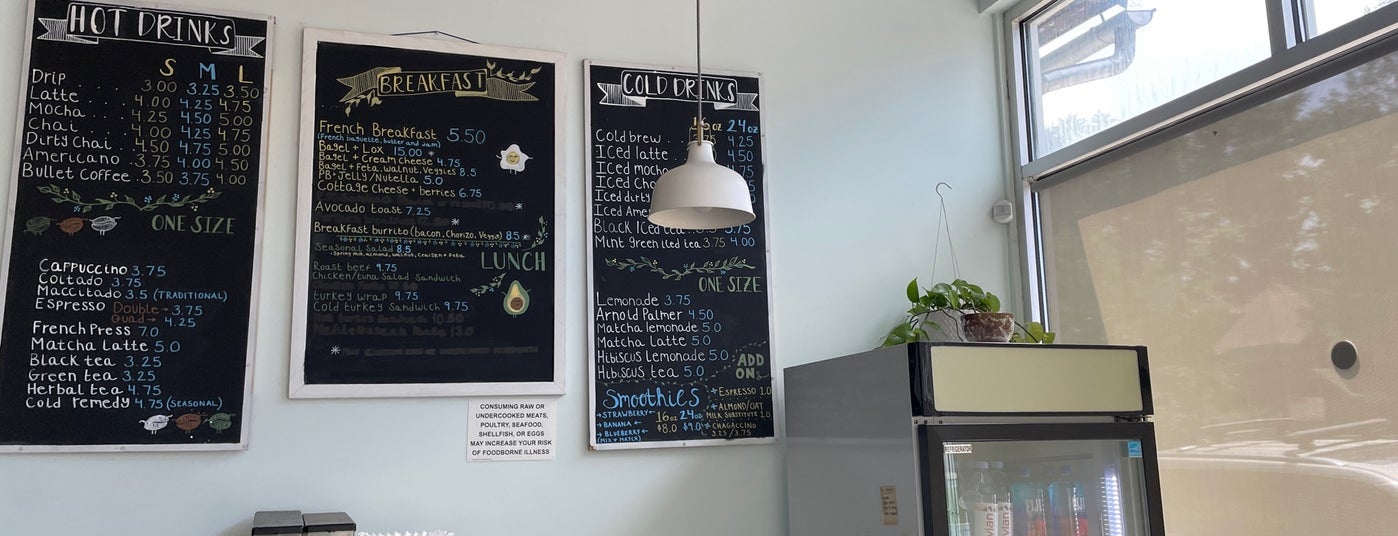 HOT DRINKS
S M L
Drip . . . . 3.00 3.25 3.50
Latte . . . . 4.00 4.25 4.75
Mocha . . . 4.25 4.50 5.00
Chai . . . . 4.00 4.25 4.75
Dirty Chai . . 4.50 4.75 5.00
Americano . 3.75 4.00 4.50
Bullet Coffee . 3.50 3.75 4.00
ONE SIZE
Cappuccino 3.75
Coltado 3.75
Maccitado 3.5 (TRADITIONAL)
Espresso Double→ 3.75
Quad→ 4.25
French Press 7.0
Matcha Latte 5.0
Black tea 3.25
Green tea 3.25
Herbal tea 4.75
Cold remedy 4.75 (SEASONAL)
BREAKFAST
French Breakfast 5.50
(French baguette, butter and jam)
Bagel + Lox 15.00 *
Bagel + Cream cheese 4.75
Bagel + Feta, walnut, Veggies 8.5
PB+Jelly/Nutella 5.0
Cottage Cheese + berries 6.75
Avocado toast 7.25
Breakfast burrito (bacon, Chorizo, Veggie) 8.5 *
Seasonal Salad 8.5
LUNCH
Roast beef 9.75
Chicken/tuna Salad Sandwich
turkey wrap 9.75
Cold turkey Sandwich 9.75
CONSUMING RAW OR
UNDERCOOKED MEATS,
POULTRY, SEAFOOD,
SHELLFISH, OR EGGS
MAY INCREASE YOUR RISK
OF FOODBORNE ILLNESS
COLD DRINKS
16oz 24oz
Cold brew 4.25
Iced latte 4.50
Iced mocha
Iced
Iced dirty
Iced
Black Iced tea
Mint Green iced tea 3.75 4.00
ONE SIZE
Lemonade 3.75
Arnold Palmer 4.50
Matcha lemonade 5.0
Matcha Latte 5.0
Hibiscus Lemonade 5.0
Hibiscus tea 5.0
ADD
ONS
+ ESPRESSO 1.0
+ ALMOND/OAT
MILK SUBSTITUTE 1.0
+ CHAGACCINO
3.25 / 3.75
Smoothies
→ STRAWBERRY ← 16oz 24oz
→ BANANA ← $8.0 $9.0
→ BLUEBERRY ←
(MIX + MATCH)
REFRIGERATOR